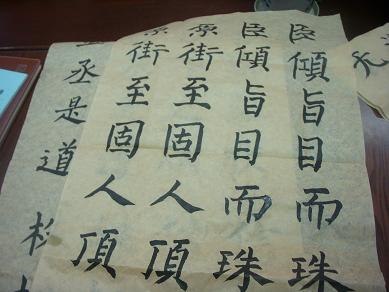 臣傾旨目而珠
臣傾旨目而珠
原街至固人頂
街至固人頂
丞是道